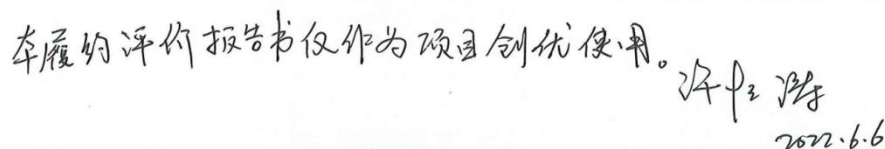 本履约评价报告书仅作为项目创优使用。
2022.6.6